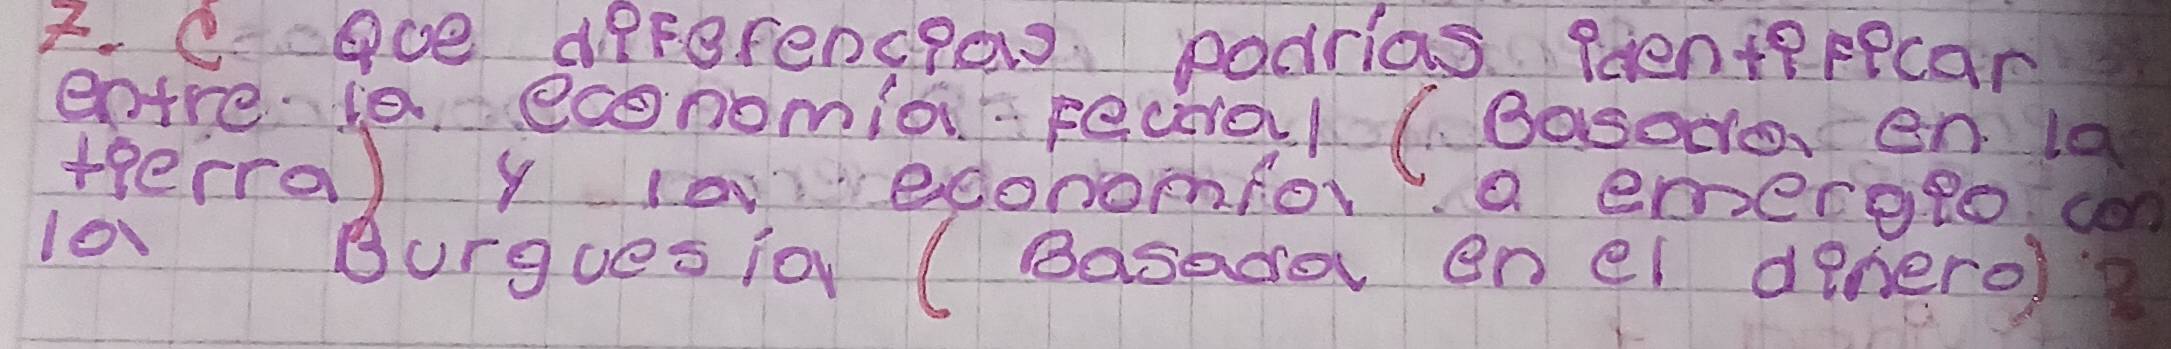 7. ¿ Que diferencias podrías identificar
entre la economía fecural ( Basada en la
tierra) y la economía a emergio con
la Burguesia ( Basada en el dinero)?